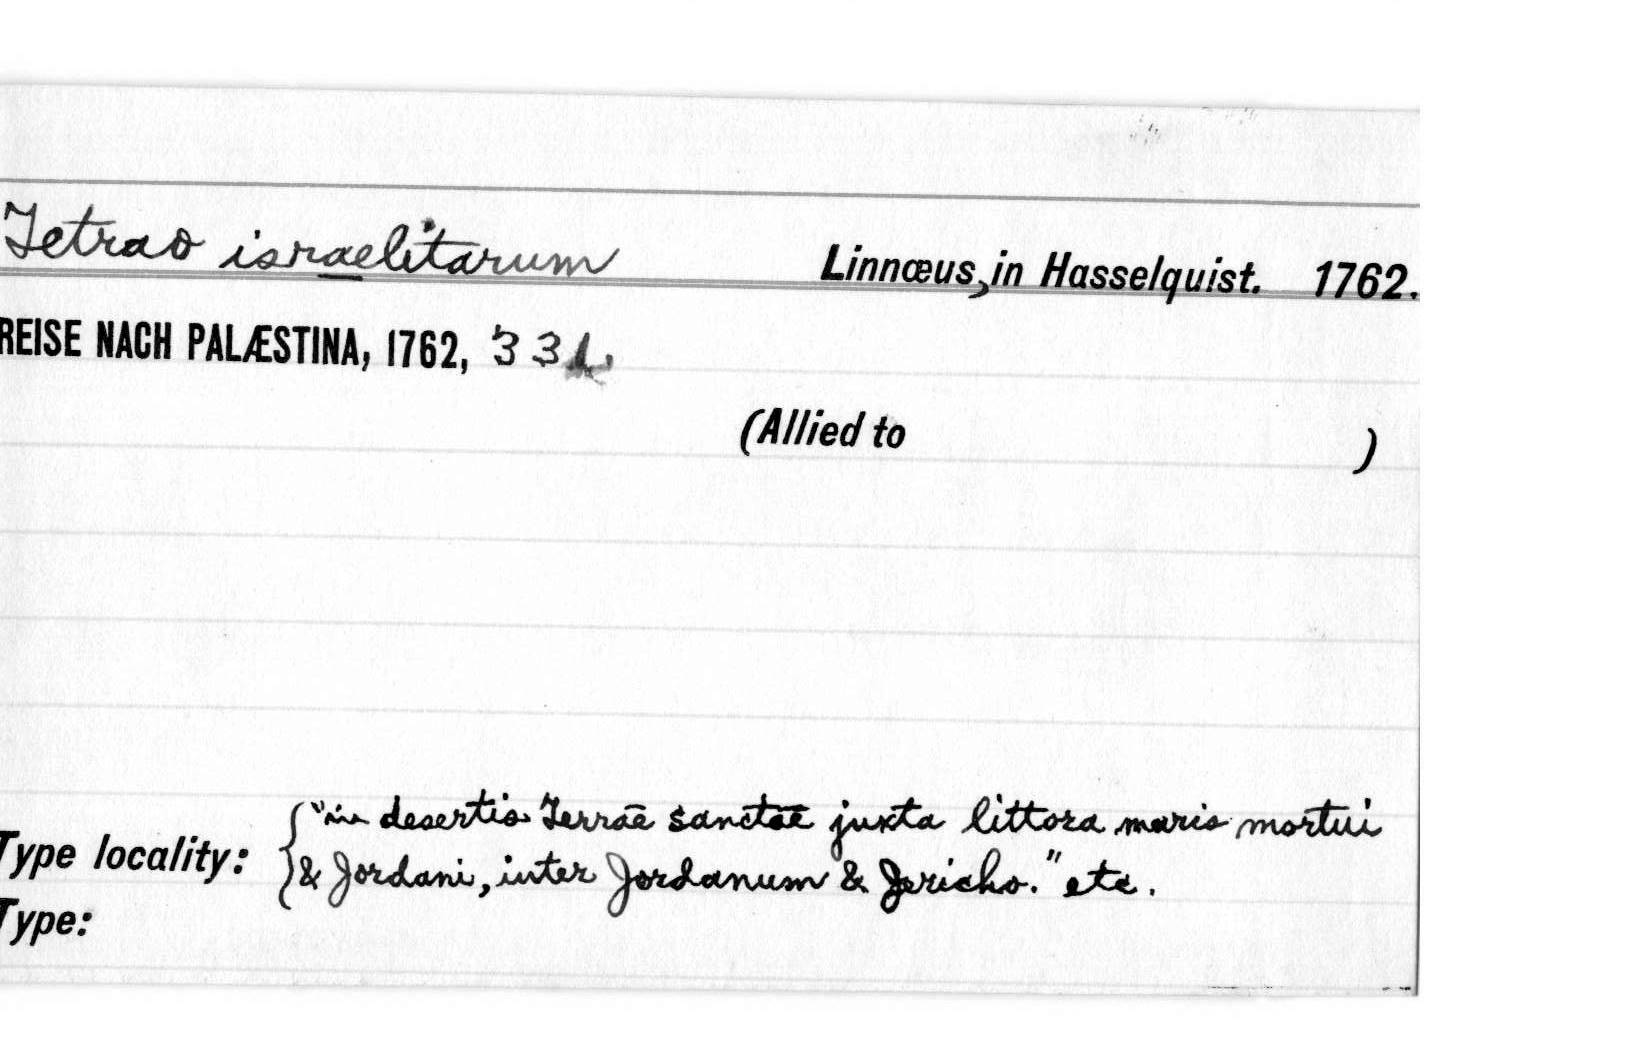 Tetrao israelitarum Linnæus, in Hasselquist. 1762.
REISE NACH PALÆSTINA, 1762, 331.
(Allied to )
Type locality: {"in desertis Terrae sanctae juxta littora maris mortui
& Jordani, inter Jordanum & Jericho." etc.
Type: